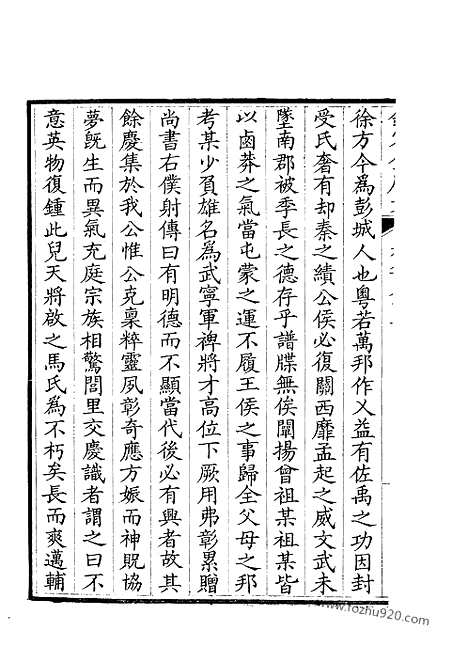 徐方今爲彭城人也粵若萬邦作乂益有佐禹之功因封
受氏奢有却秦之績公侯必復關西靡孟起之威文武未
墜南郡被季長之德存乎譜牒無俟闡揚曾祖某祖某皆
以鹵莽之氣當屯蒙之運不履王侯之事歸全父母之邦
考某少負雄名爲武寧軍裨將才高位下厥用弗彰累贈
尚書右僕射傳曰有明德而不顯當代後必有興者故其
餘慶集於我公惟公克稟粹靈夙彰奇應方娠而神貺協
夢旣生而異氣充庭宗族相驚閭里交慶識者謂之曰不
意英物復鍾此兒天將啟之馬氏爲不朽矣長而爽邁輔
www.fozhu920.com